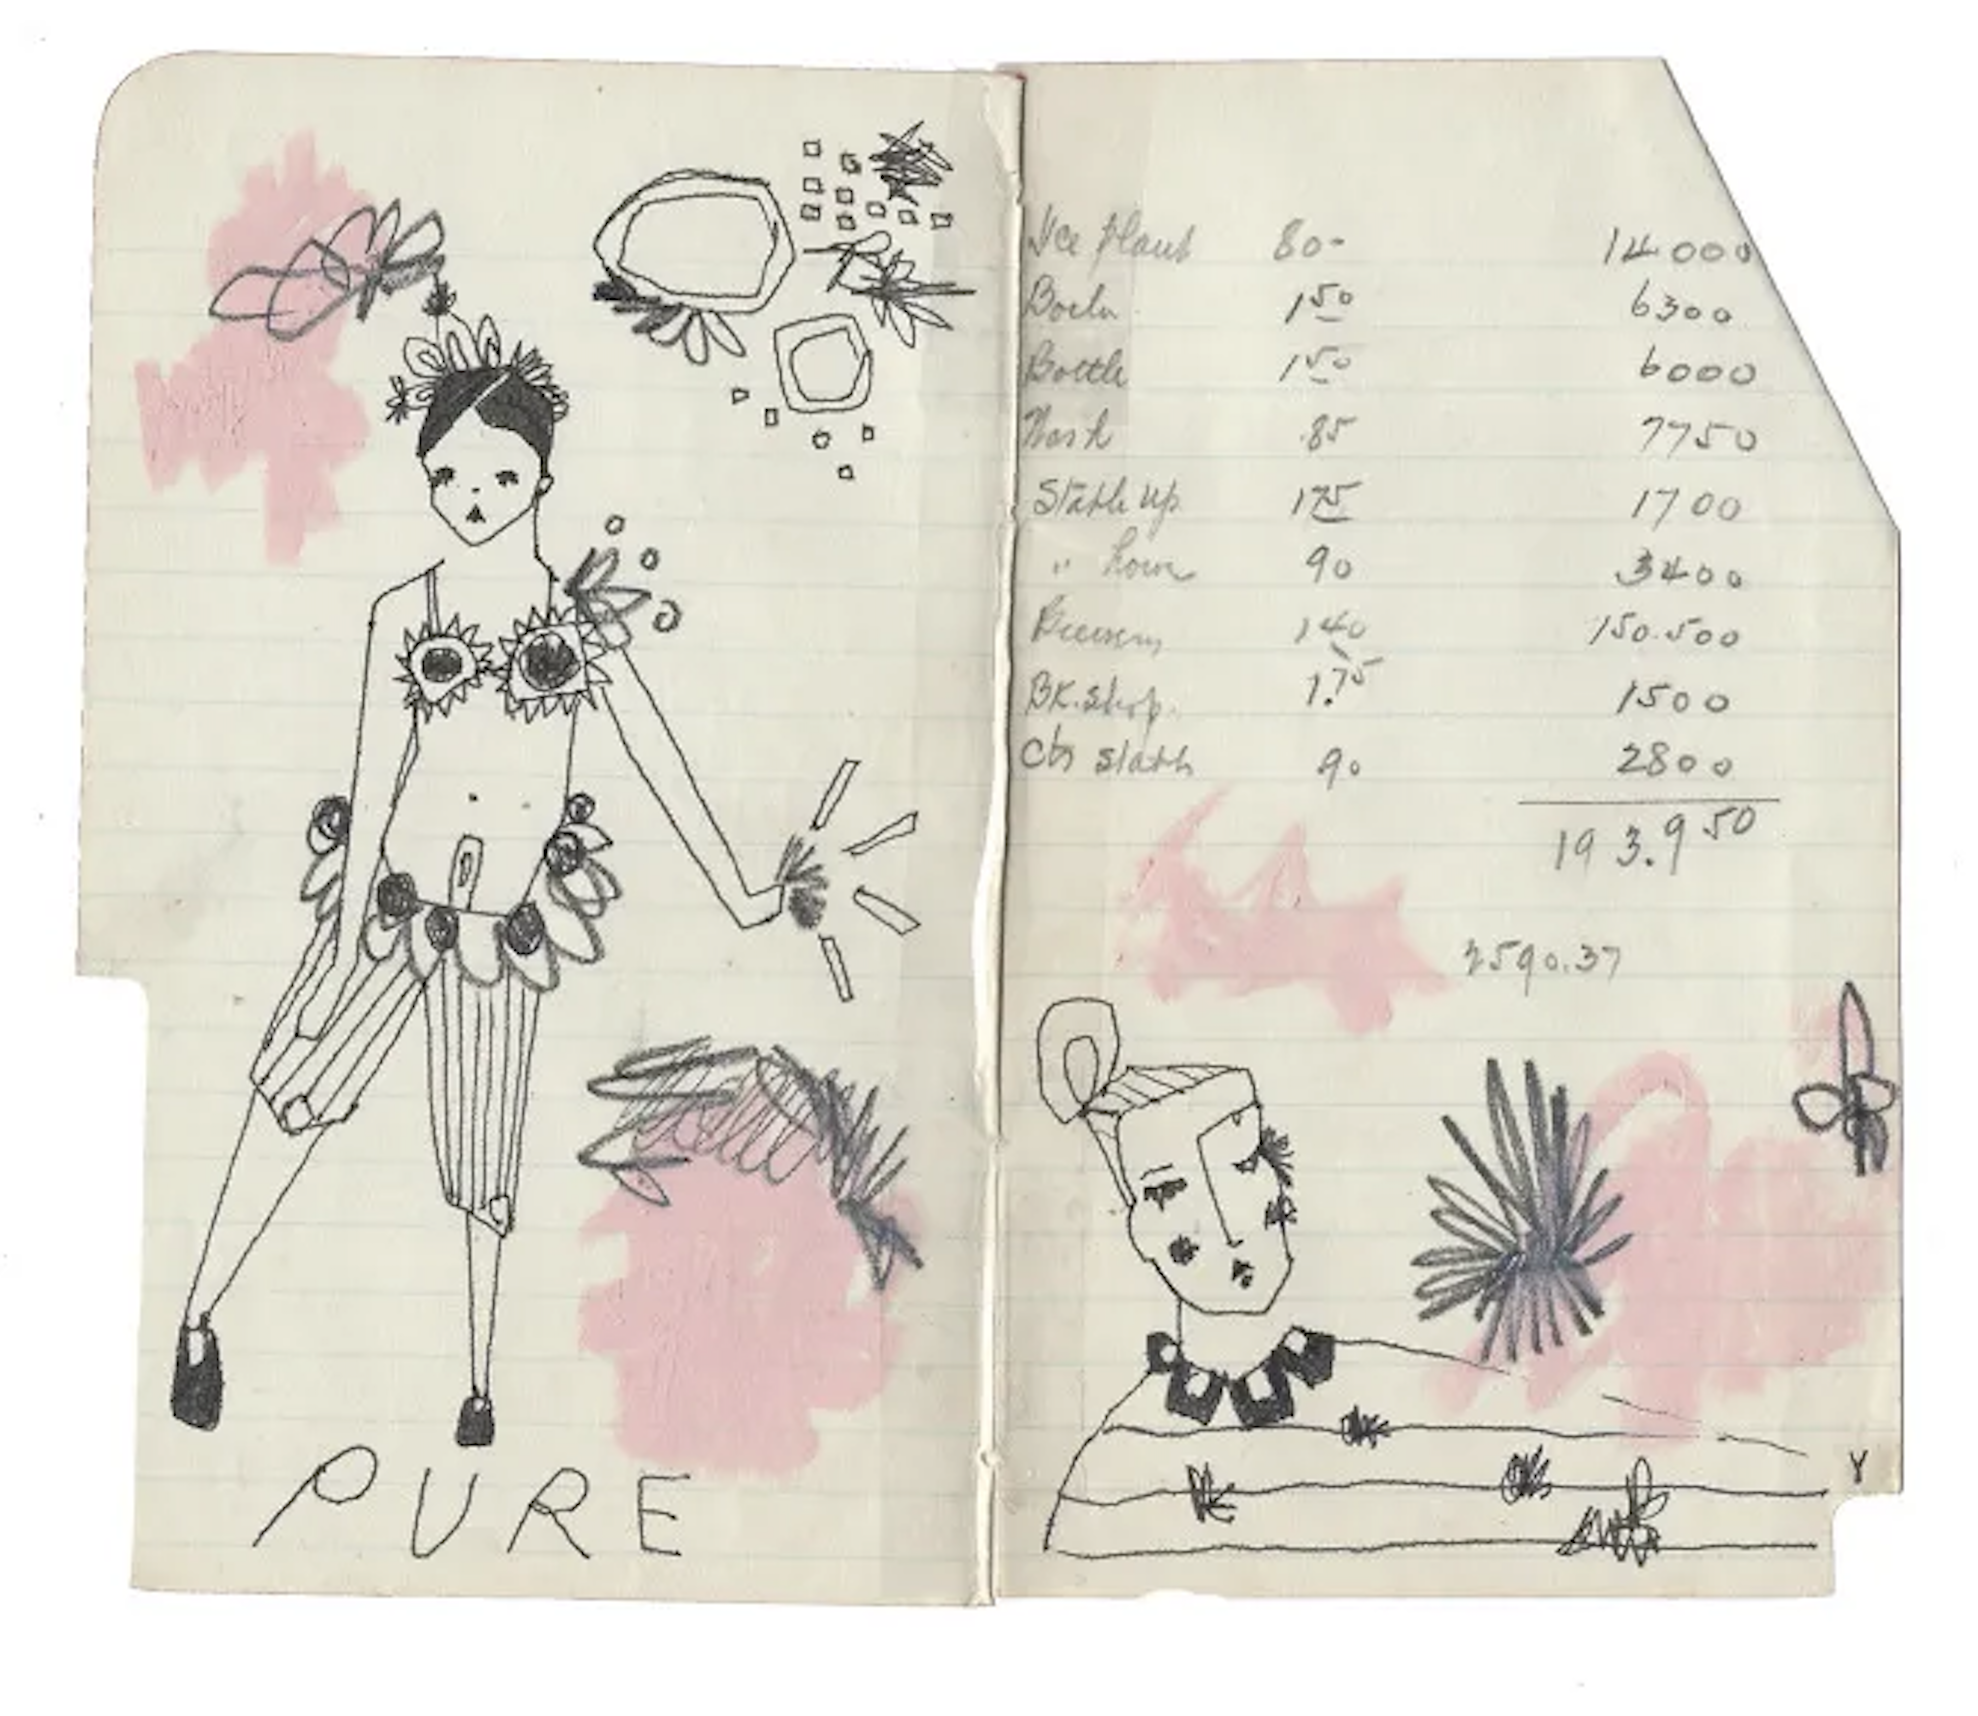 PURE
Ice plant 80- 14000
150 6300
Bottle 150 6000
Wash .85 7750
Stable up 175 1700
" 90 3400
140 150.500
BK. shop. 1.75 1500
90 2800
193.950
2590.37
Y